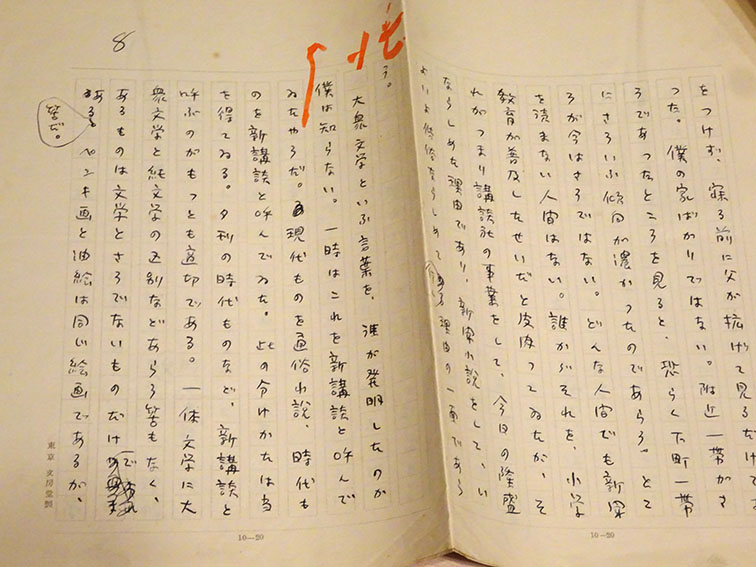 をつけず、寝る前に父が拡げて見るだけで
つた。僕の家ばかりではない。附近一帯がさ
うであつたところを見ると、恐らく下町一帯
にさういふ傾向が濃かつたのであらう。とこ
ろが今はさうではない。どんな人間でも新聞
を読まない人間はない。誰かがそれを、小学
教育が普及したせいだと皮肉つてゐたが、そ
れがつまり講談社の事業をして、今日の隆盛
ならしめた理由であり、新聞小説をして、い
よいよ低俗ならしめて ある理由の一面であら
う。
大衆文学といふ言葉を、誰が発明したのか
僕は知らない。一時はこれを新講談と呼んで
ゐたやうだ。現代ものを通俗小説、時代も
のを新講談と呼んでゐた。此の分けかたは当
を得てゐる。夕刊の時代ものなど、新講談と
呼ぶのがもつとも適切である。一体文学に大
衆文学と純文学の区別などあらう筈もなく、
あるものは文学とさうでないものだけで
ある
筈だ。
ペンキ画と油絵は同じ絵画であるが、
8
10—20
10—20
東京 文房堂製